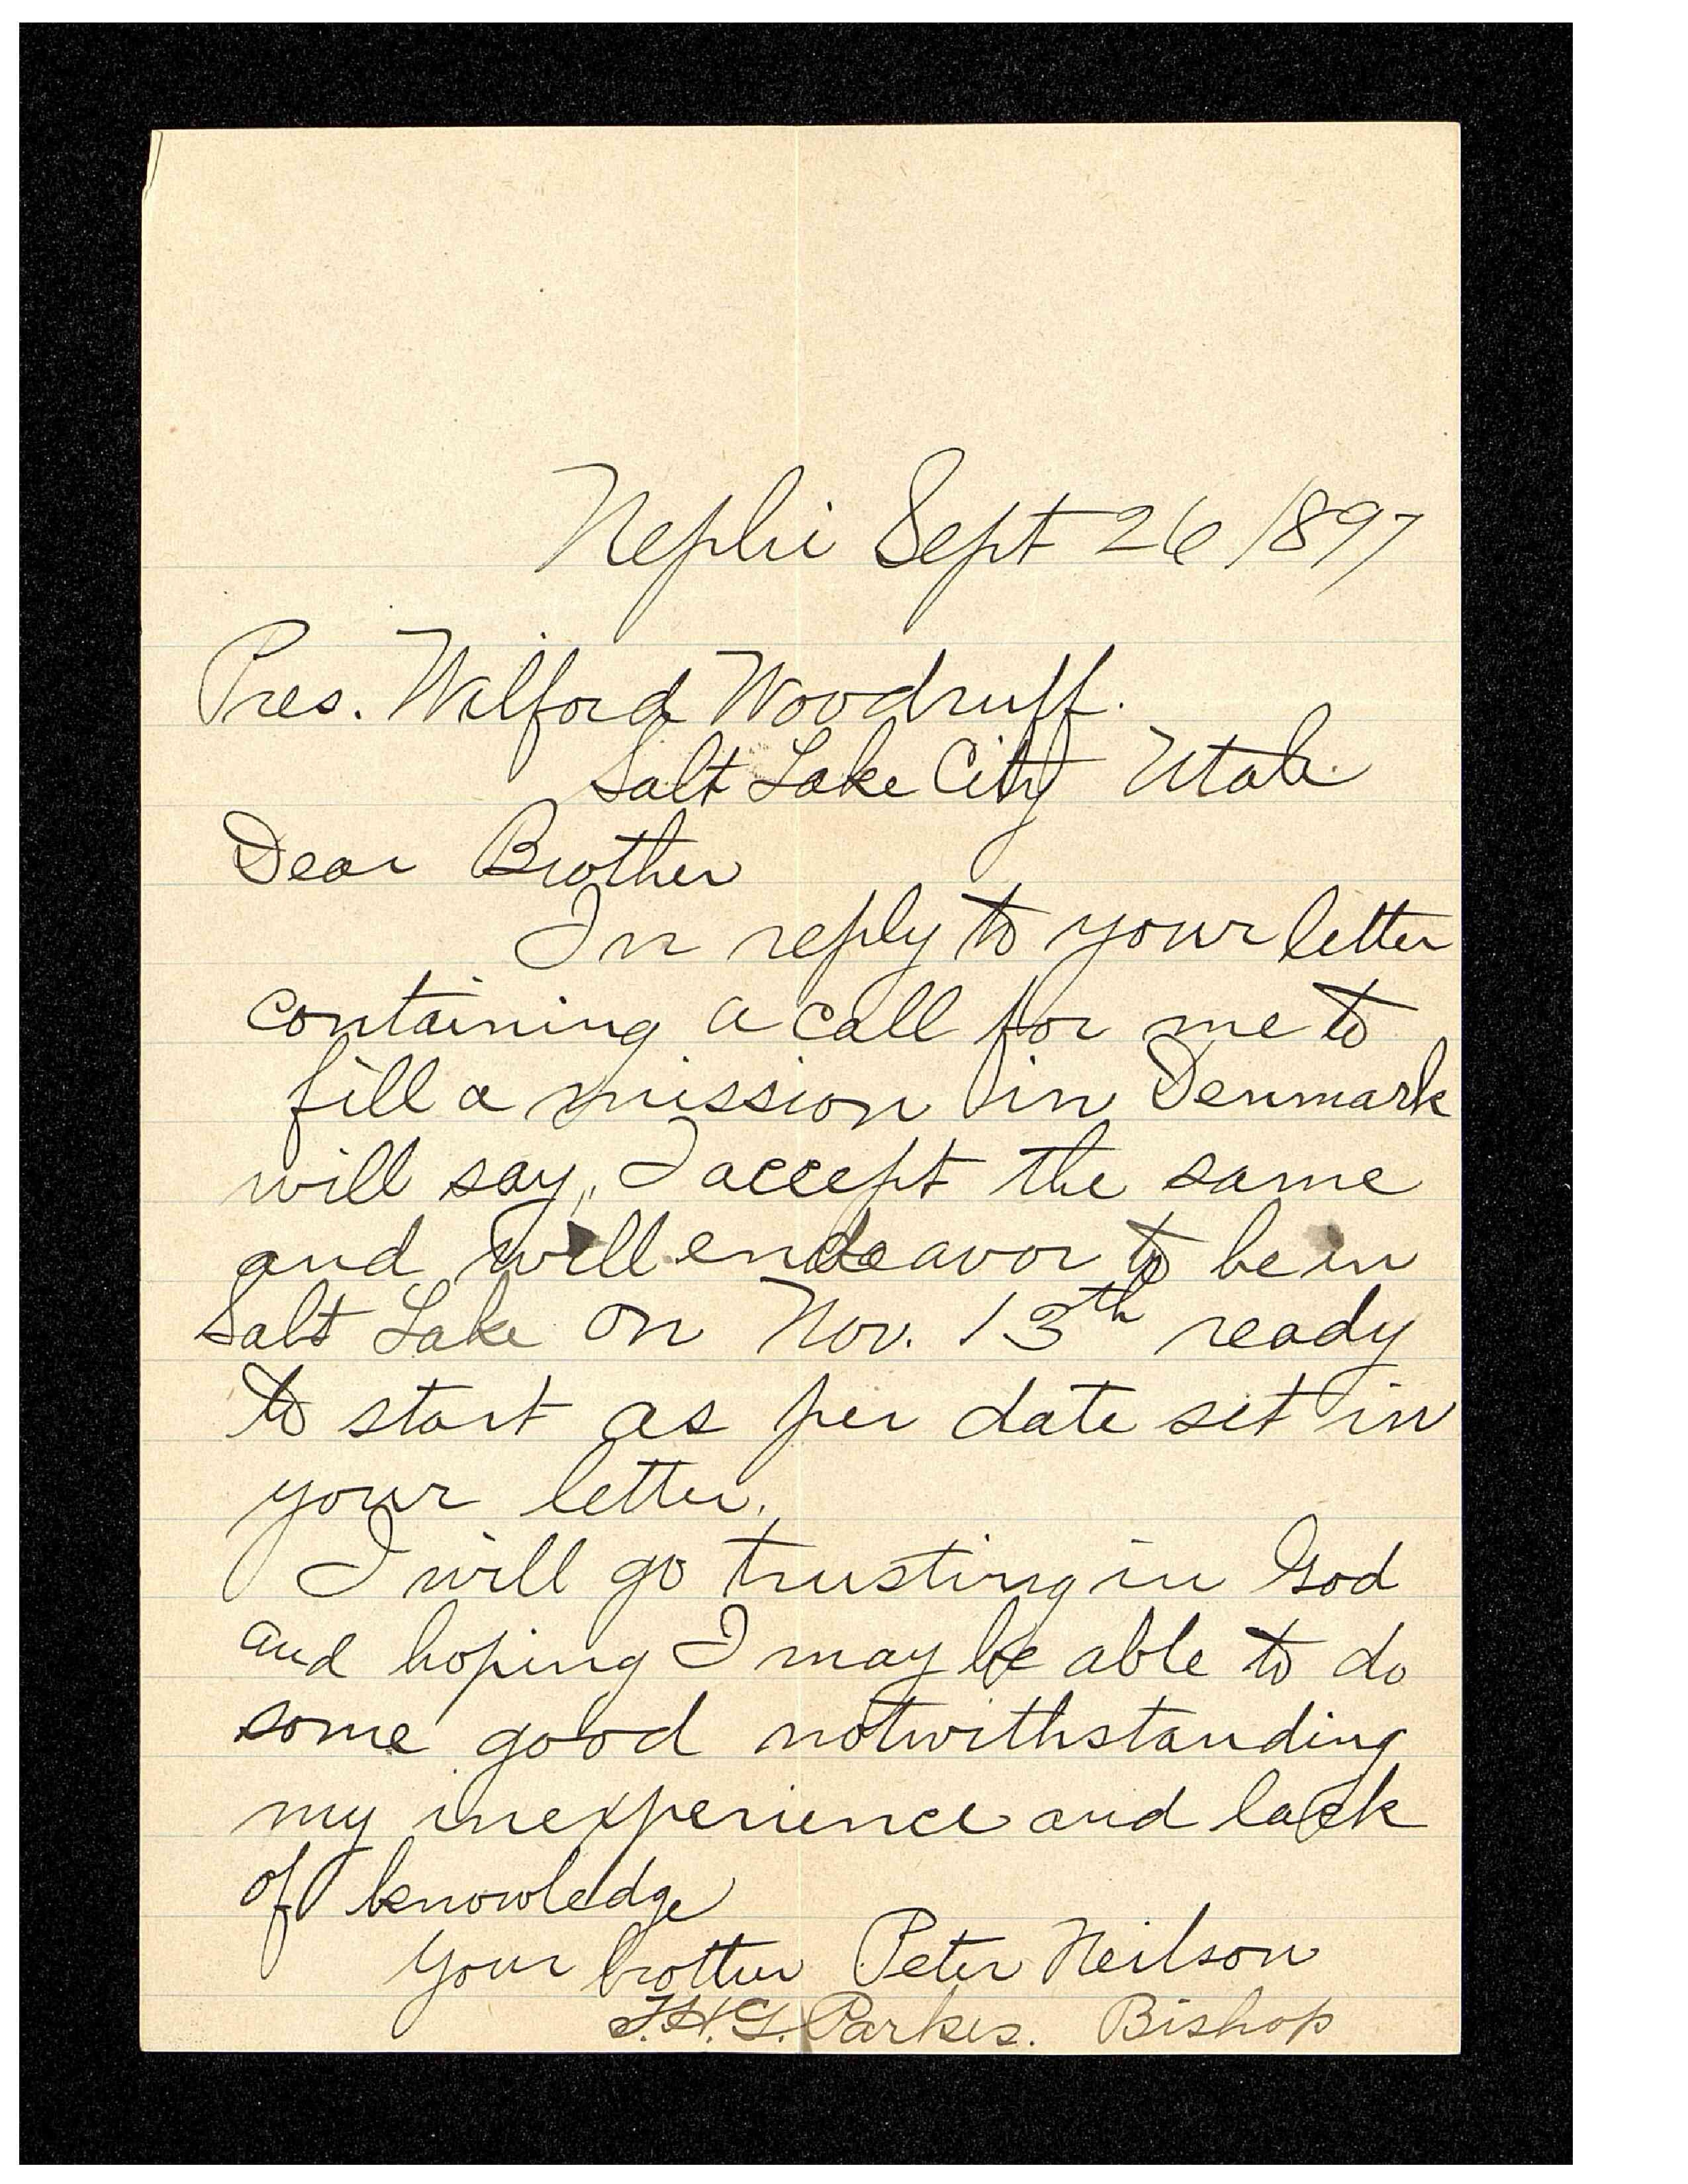 Nephi Sept 26 1897
Pres. Wilford Woodruff.
Salt Lake City Utah.
Dear Brother
In reply to your letter
containing a call for me to
fill a mission in Denmark
will say, I accept the same
and will endeavor to be in
Salt Lake on Nov. 13th ready
to start as per date set in
your letter.
I will go trusting in God
and hoping I may be able to do
some good notwithstanding
my inexperience and lack
of knowledge
Your brother Peter Neilson
T.H.G. Parkes. Bishop